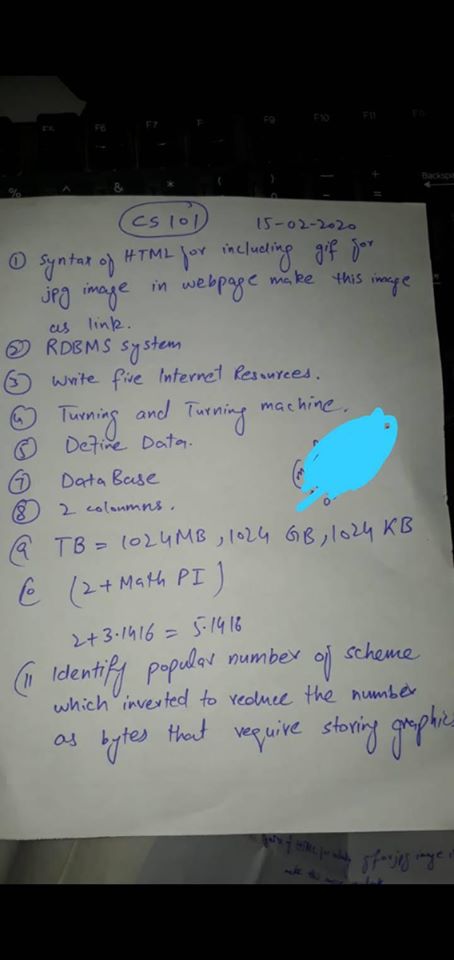 CS 101
15-02-2020
① Syntax of HTML for including gif for
jpg image in webpage make this image
as link.
② RDBMS system
③ Write five Internet Resources.
④ Turning and Turning machine.
⑤ Define Data.
⑦ DataBase
⑧ 2 coloumns.
9 TB = 1024MB, 1024 GB, 1024 KB
10 (2 + Math PI)
2+3.1416 = 5.1416
11 Identify popular number of scheme
which inverted to reduce the number
as bytes that require storing graphics